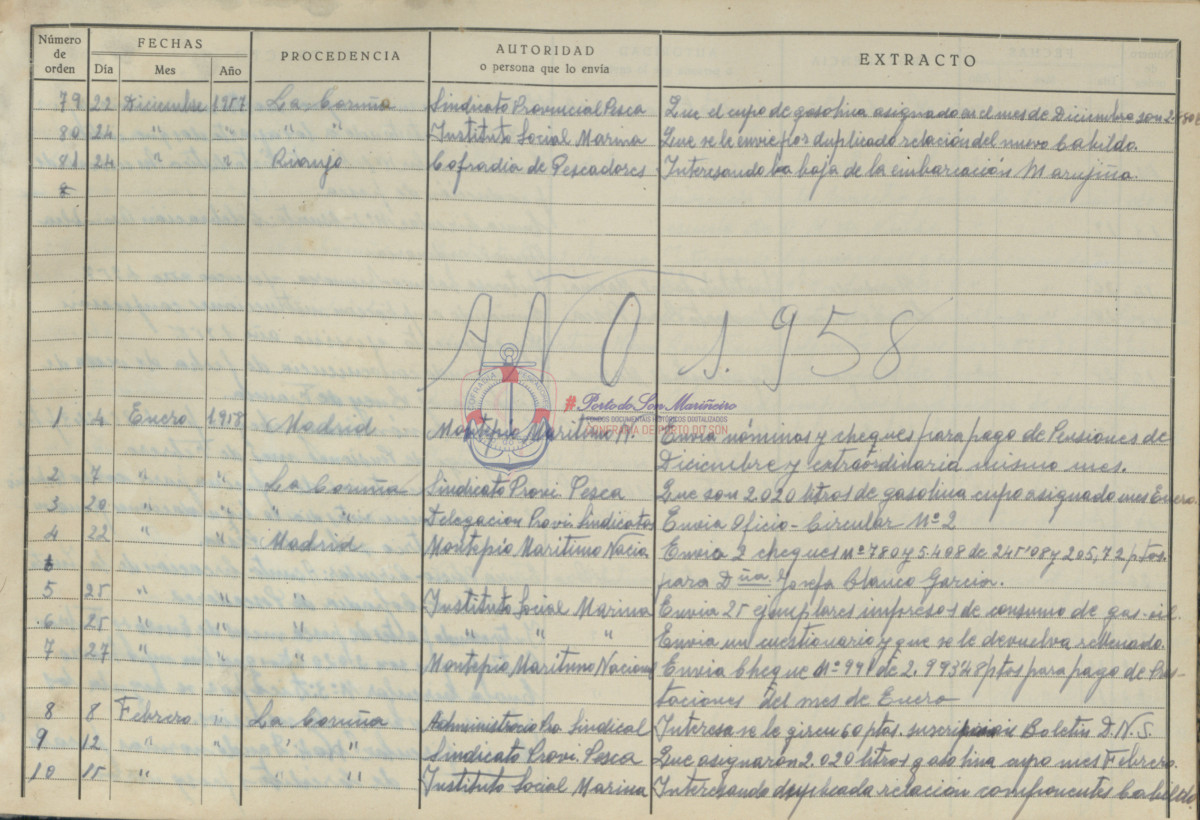 Número de orden FECHAS PROCEDENCIA AUTORIDAD o persona que lo envía EXTRACTO
Día Mes Año
79 22 Diciembre 1957 La Coruña Sindicato Provincial Pesca Que el cupo de gasolina asignado en el mes de Diciembre son
80 24 " " " " Instituto Social Marina Que se le envie por duplicado relación del nuevo Cabildo.
81 24 " " Rianjo Cofradia de Pescadores Interesando la baja de la embarcación Marujiña.
AÑO 1.958
COFRADIA
#Porto do Son Mariñeiro
FONDOS DOCUMENTAIS HISTÓRICOS DIXITALIZADOS
CONFRARIA DE PORTO DO SON
1 4 Enero 1958 Madrid Montepio Maritimo N. Envia nóminas y cheques para pago de Pensiones de
Diciembre y extraordinaria mismo mes.
2 7 " " La Coruña Sindicato Provi. Pesca Que son 2.020 litros de gasolina cupo asignado mes Enero
3 20 " " " Delegacion Provi. Sindicatos Envia Oficio-Circular Nº 2
4 22 " Madrid Montepio Maritimo Nacio Envia 2 cheques nº 780 y 5.408 de 245'08 y 205,72 ptas.
para Dña. Josefa Blanco Garcia.
5 25 " Instituto Social Marina Envia 25 ejemplares impresos de consumo de gas-oil.
6 25 " " " " Envia un cuestionario y que se le devuelva rellenado.
7 27 " " Montepio Maritimo Nacional Envia cheque Nº de 2.993'48 ptas para pago de Pres-
taciones del mes de Enero
8 8 Febrero La Coruña Administració Pro. Sindical Interesa se le giren 60 ptas. suscripcion Boletin D.N.S.
9 12 " " " Sindicato Provi. Pesca Que asignarón 2.020 litros gasolina cupo mes Febrero.
10 15 " " " Instituto Social Marina Interesando duplicada relación componentes Cabildo.